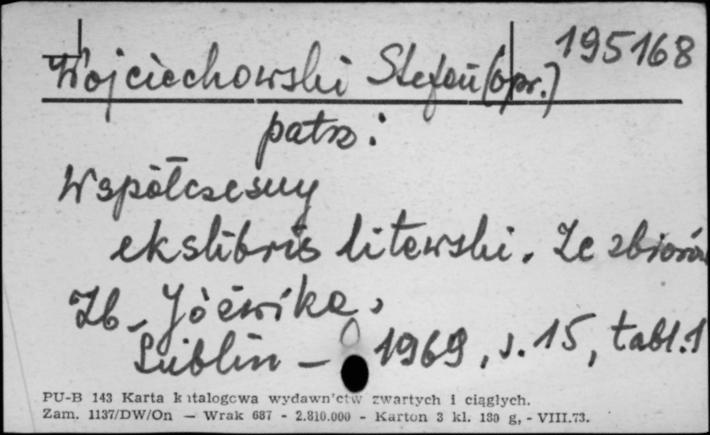 Wojciechowski Stefan (opr.) 195168
patrz:
Współczesny
ekslibris litewski. Ze zbiorów
Zb. Jóźwika,
Lublin - 1969, s. 15, tabl. 1
PU-B 143 Karta katalogowa wydawn'ctw zwartych i ciągłych.
Zam. 1137/DW/On — Wrak 687 - 2.810.000 - Karton 3 kl. 180 g, - VIII.73.